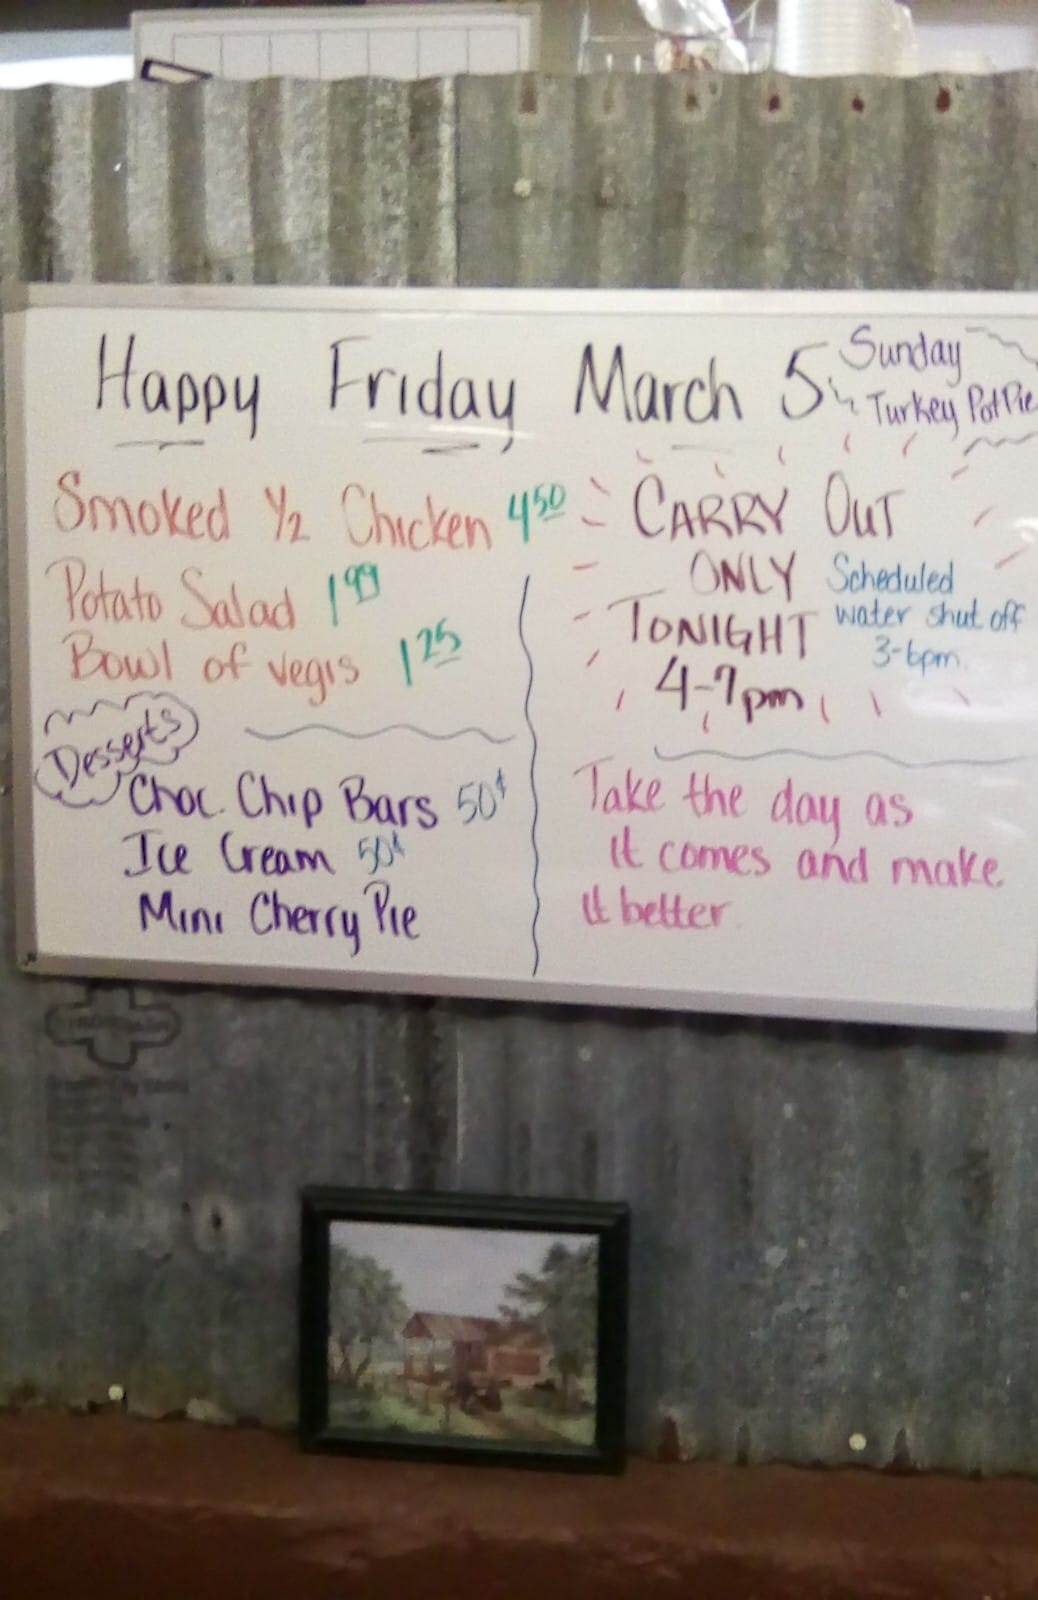 Happy Friday March 5
Sunday
Turkey Pot Pie
Smoked 1/2 Chicken 4.50
Potato Salad 1.99
Bowl of vegis 1.25
Desserts
Choc. Chip Bars 50¢
Ice Cream 50¢
Mini Cherry Pie
CARRY OUT
ONLY
TONIGHT
4-7pm
Scheduled
water shut off
3-6pm.
Take the day as
it comes and make
it better.